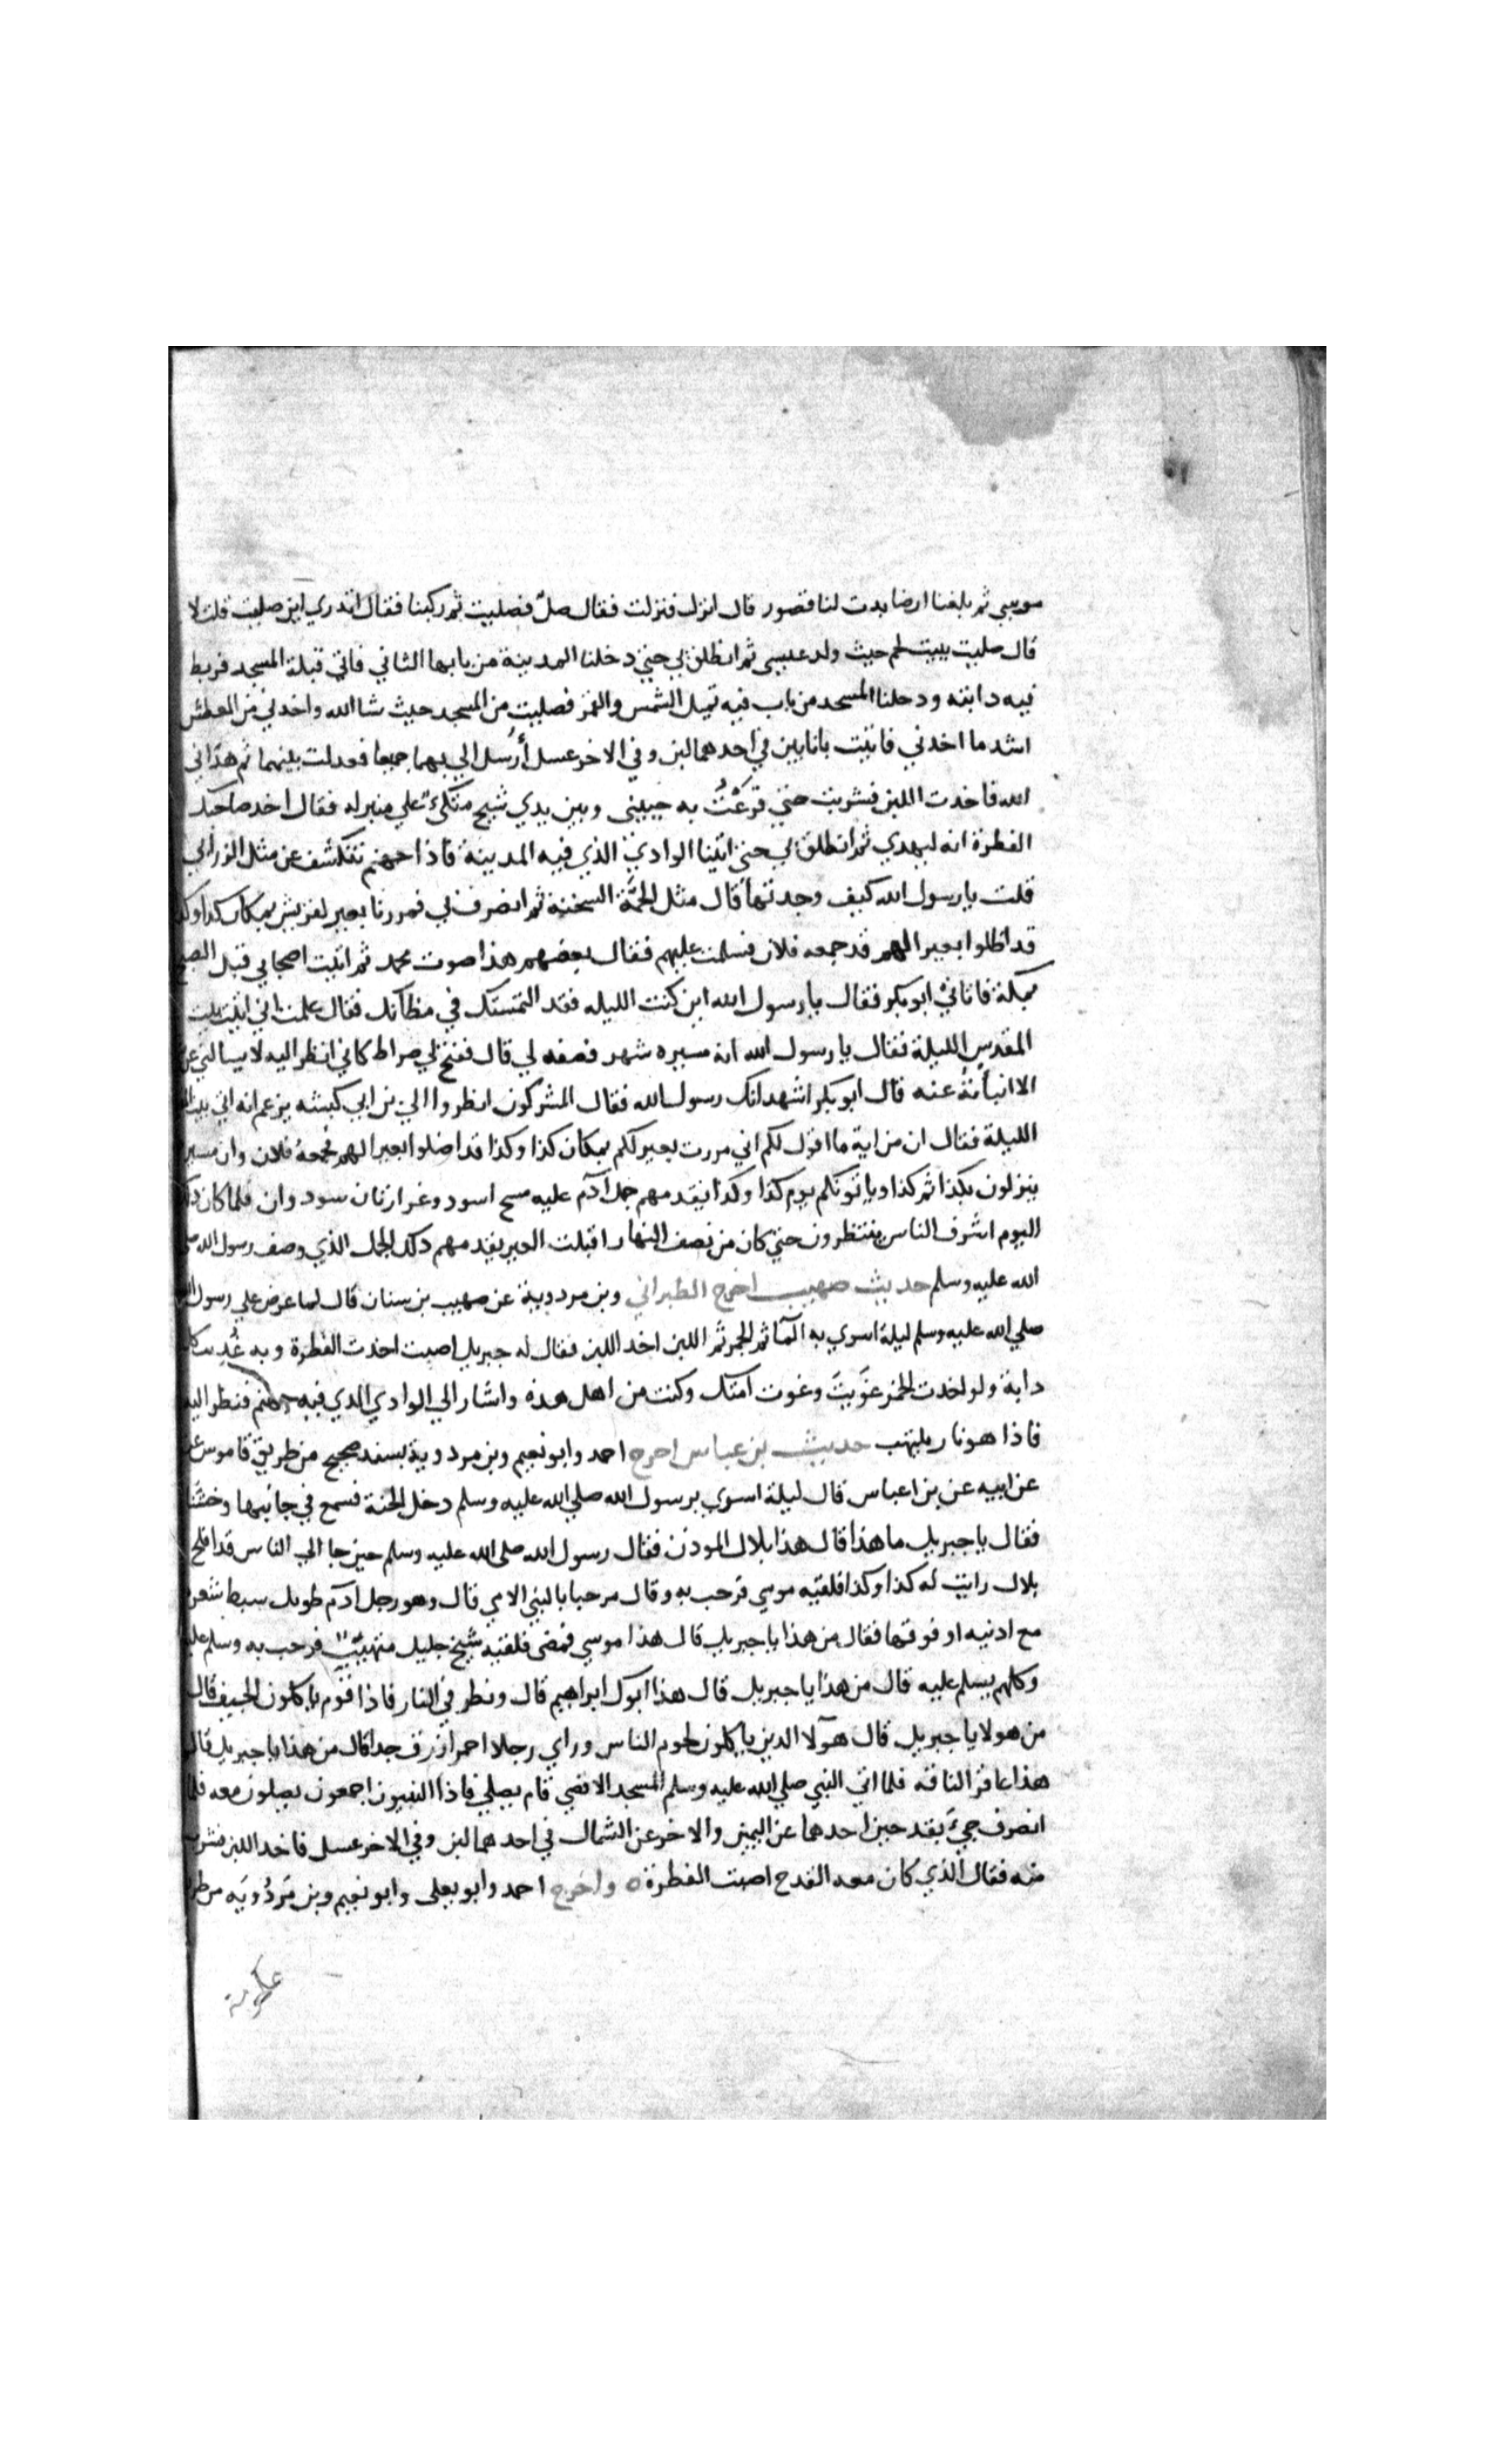 موسي ثم بلغنا ارضا بدت لنا قصور قال انزل فنزلت فقال صلّ فصليت ثم ركبنا فقال اتدري اين صليت قلت لا
قال صليت ببيت لحم حيث ولد عيسي ثم انطلق بي حتي دخلنا المدينة من بابها الثاني فاتي قبلة المسجد فربط
فيه دابته ودخلنا المسجد من باب فيه تميل الشمس والقمر فصليت من المسجد حيث شا الله واخدني من العطش
اشد ما اخدني فاتيت بانايين في احدهما لبن وفي الاخر عسل أرسل الي بهما جميعا فعدلت بينهما ثم هداني
الله فاخدت اللبن فشربت حتي قرعْتُ به جبيني وبين يدي شيخ متكئ علي منبر له فقال اخد صاحبك
الفطرة انه ليهدي ثم انطلق بي حتي اتينا الوادي الذي فيه المدينة فاذا جهنم تنكشف عن مثل الزرابي
قلت يا رسول الله كيف وجدتها قال مثل الحمَّة السخنة ثم انصرف بي فمررنا بعير لقريش بمكان كدا وكدا
قد اظلوا بعيرا لهم قد جمعه فلان فسلمت عليهم فقال بعضهم هذا صوت محمد ثم اتيت اصحابي قبل الصبح
بمكة فاتاني ابو بكر فقال يا رسول الله اين كنت الليله فقد التمستك في مظانك فقال علمت اني اتيت بيت
المقدس الليلة فقال يا رسول الله انه مسيره شهر فصفه لي قال ففتح لي صراط كاني انظر اليه لا يسالني عن
الا انبأته عنه قال ابو بكر اشهد انك رسول الله فقال المشركون انظروا الي بن ابي كبشه يزعم انه اتي بيت
الليلة فقال ان من اية ما اقول لكم اني مررت بعير لكم بمكان كذا وكذا قد اضلوا بعيرا لهم فجمعه فلان وان مسيرهم
ينزلون بكذا ثم كذا وياتونكم يوم كذا وكذا يقدمهم جمل آدم عليه مسح اسود وغرارتان سود وان فلما كان ذلك
اليوم اشرف الناس ينتظرون حتي كان من نصف النهار اقبلت العير يقدمهم ذلك الجمل الذي وصف رسول الله صلي
الله عليه وسلم حديث صهيب اخرج الطبراني وبن مردويه عن صهيب بن سنان قال لما عرض علي رسول الله
صلي الله عليه وسلم ليلة اسري به المآ ثم الخمر ثم اللبن اخد اللبن فقال له جبريل اصبت اخدت الفطرة وبه غُدِيت كل
دابة ولو اخدت الخمر غوَيتَ وغوت امتك وكنت من اهل هذه واشار الي الوادي الدي فيه جهنم فنظر اليه
فاذا هو نار يلتهب حديث بن عباس اخرج احمد وابو نعيم وبن مردويه بسند صحيح من طريق قاموس عن
عن ابيه عن بن اعباس قال ليلة اسري برسول الله صلي الله عليه وسلم دخل الجنة فسمع في جانبها وخشا
فقال يا جبريل ما هذا قال هذا بلال المودن فقال رسول الله صلي الله عليه وسلم حين جا الي الناس قد افلح
بلال رايت له كذا وكذا فلقيه موسي فرحب به وقال مرحبا بالنبي الامي قال وهو رجل ادَم طويل سبط شعره
مع ادنيه او فوقها فقال من هذا يا جبريل قال هذا موسي فمضي فلقيه شيخ جليل متهيّب فرحب به وسلم عليه
وكلهم يسلم عليه قال من هذا يا جبريل قال هذا ابوك ابراهيم قال ونظر في النار فاذا قوم ياكلون الجيف قال
من هولا يا جبريل قال هوٓلا الدين ياكلون لحوم الناس وراي رجلا احمر ازرق جدا قال من هذا يا جبريل قال
هذا عاقر الناقه فلما اتي النبي صلي الله عليه وسلم المسجد الاقصي قام يصلي فاذا النبيون اجمعون يصلون معه فلما
انصرف جيء بقدحين احدهما عن اليمين والاخر عن الشمال في احدهما لبن وفي الاخر عسل فاخد اللبن فشرب
منه فقال الذي كان معه القدح اصبت الفطرة ه واخرج احمد وابو يعلي وابو نعيم وبن مَردُويَه من طريق
عكرمة